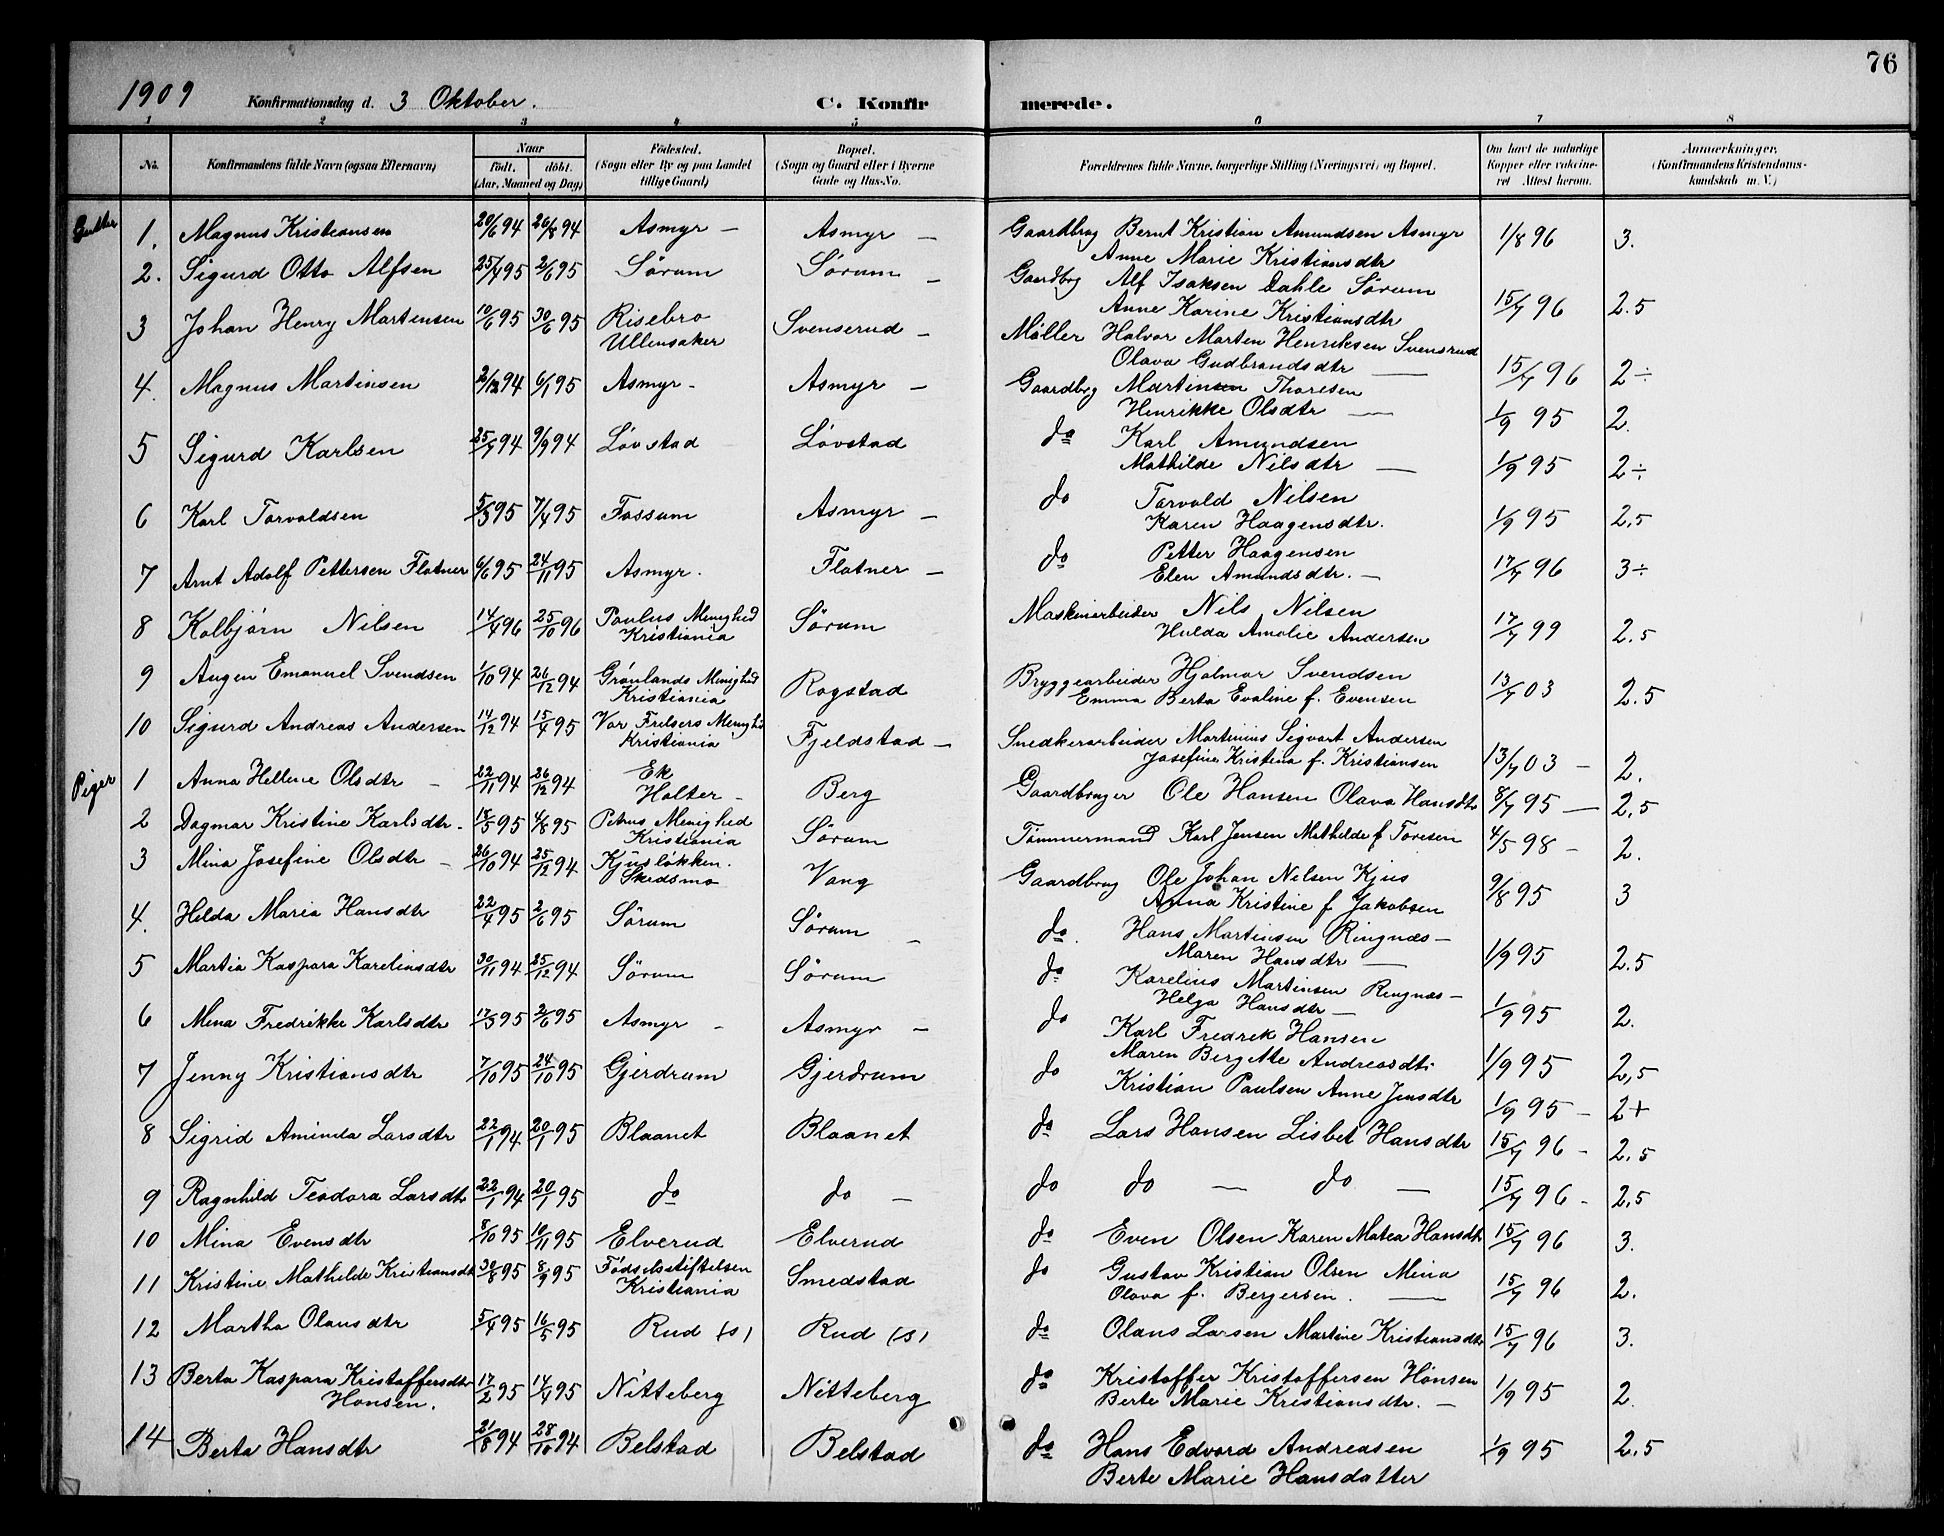 76
1909 Konfirmationsdag d. 3 Oktober. C. Konfirmerede.
1 2 3 4 5 6 7 8
No. Konfirmandens fulde Navn (ogsaa Efternavn) Naar født. døbt. (Aar, Maaned og Dag) Fødested. (Sogn eller By og paa Landet tillige Gaard) Bopæl. (Sogn og Gaard eller i Byerne Gade og Hus-No.) Forældrenes fulde Navne, borgerlige Stilling (Næringsvei) og Bopæl. Om havt de naturlige Kopper eller vakcineret. Attest herom. Anmerkninger. (Konfirmandens Kristendomskundskab m. V.)
Gutter
1. Magnus Kristiansen 20/6 94 26/8 94 Asmyr – Asmyr – Gaardbrug Bernt Kristian Amundsen Asmyr 1/8 96 3.
Anne Marie Kristiansdtr
2. Sigurd Otto Alfsen 25/4 95 2/6 95 Sørum Sørum – Gaardbrg Alf Isaksen Dahle Sørum 15/7 96 2.5
Anne Karine Kristiansdtr
3 Johan Henry Martensen 10/6 95 30/6 95 Risebro Svenserud – Møller Halvor Marten Henriksen Svensrud 15/7 96 2÷
Ullensaker Olava Gudbrandsdtr —
4. Magnus Martinsen 2/12 94 6/1 95 Asmyr - Asmyr – Gaardbrg Martinsen Thoresen 1/9 95 2.
Henrikke Olsdtr —
5 Sigurd Karlsen 25/7 94 9/9 94 Løvstad Løvstad do Karl Amundsen 1/9 95 2÷
Mathilde Nilsdtr —
6 Karl Torvaldsen 5/3 95 7/4 95 Fossum Asmyr – do Torvald Nilsen 1/9 95 2,5
Karen Haagensdtr.
7 Arnt Adolf Pettersen Flatner 6/6 95 24/11 95 Asmyr. Flatner – do Petter Haagensen 17/7 96 3÷
Elen Amundsdtr. –
8 Kolbjørn Nilsen 14/4 96 25/10 96 Paulus Menighed Sørum Maskinarbeider Nils Nilsen 17/7 99 2.5
Kristiania Hulda Amalie Andersen
9 Augen Emanuel Svendsen 1/10 94 26/12 94 Grønlands Menighed Rogstad Bryggearbeider Hjalmar Svendsen 13/7 03 2.5
Kristiania Emma Berta Evaline f. Evensen
10 Sigurd Andreas Andersen 14/12 94 15/4 95 Vor Frelsers Menigh Fjeldstad – Snedkerarbeider Martinius Sigvart Andersen 13/7 03 – 2.
Kristiania Josefine Kristina f. Kristiansen
Piger
1 Anna Hellene Olsdtr – 22/11 94 26/12 94 Ek Berg Gaardbruger Ole Hansen Olava Hansdtr 8/7 95 — 2,5
Holter –
2 Dagmar Kristine Karlsdtr. 18/5 95 4/8 95 Petrus Menighed Sørum Tømmermand Karl Jensen Mathilde f Toresen 4/5 98 – 2.
Kristiania
3 Mina Josefine Olsdtr – 26/10 94 25/12 94 Kjusløkken. Vang Gaardbrug Ole Johan Nilsen Kjus 9/8 95 3
Skedsmo Anna Kristine f Jakobsen
4. Helda Maria Hansdtr 22/4 95 2/6 95 Sørum Sørum – do. Hans Martinsen Ringnæs – 1/9 95 2.5
Maren Hansdtr —
5 Martia Kaspara Kareliusdtr 30/11 94 25/12 94 Sørum Sørum do Karelius Martinsen Ringnæs – 1/9 95 2.
Helga Hansdtr –
6 Mina Fredrikke Karlsdtr 17/3 95 2/6 95 Asmyr – Asmyr – do Karl Fredrek Hansen 1/9 95 2,5
Maren Bergitte Andreasdtr
7 Jenny Kristiansdtr 7/10 95 24/10 95 Gjerdrum Gjerdrum do Kristian Paulsen Anne Jensdtr 1/9 95 – 2+
8 Sigrid Aminda Larsdtr 22/1 94 20/1 95 Blaanet Blaanet do Lars Hansen Lisbet Hansdtr 15/7 96 – 2.5
9 Ragnhild Teodora Larsdtr 22/1 94 20/1 95 do do – do do — do — 15/7 96 – 2,5
10 Mina Evensdtr 8/10 95 10/11 95 Elverud Elverud do Even Olsen Karen Matea Hansdtr 15/7 96 3.
11 Kristine Mathilde Kristiansdtr 30/8 95 8/9 95 Fødselsstiftelsen Smedstad do Gustav Kristian Olsen Mina 15/7 96 2.
Kristiania Olava f. Bergersen. —
12 Martha Olausdtr 5/4 95 16/5 95 Rud (s) Rud (s) do Olaus Larsen Martine Kristiansdtr 15/7 96 3.
13 Berta Kaspara Kristoffersdtr 17/2 95 14/4 95 Nitteberg Nitteberg do Kristoffer Kristoffersen Hønsen 1/9 95 2.
Hønsen. Berte Marie Kristiansdtr. –
14 Berta Hansdtr 21/8 94 28/10 94 Belstad Belstad do Hans Edvard Andreasen 1/9 95 2.5
Berte Marie Hansdatter